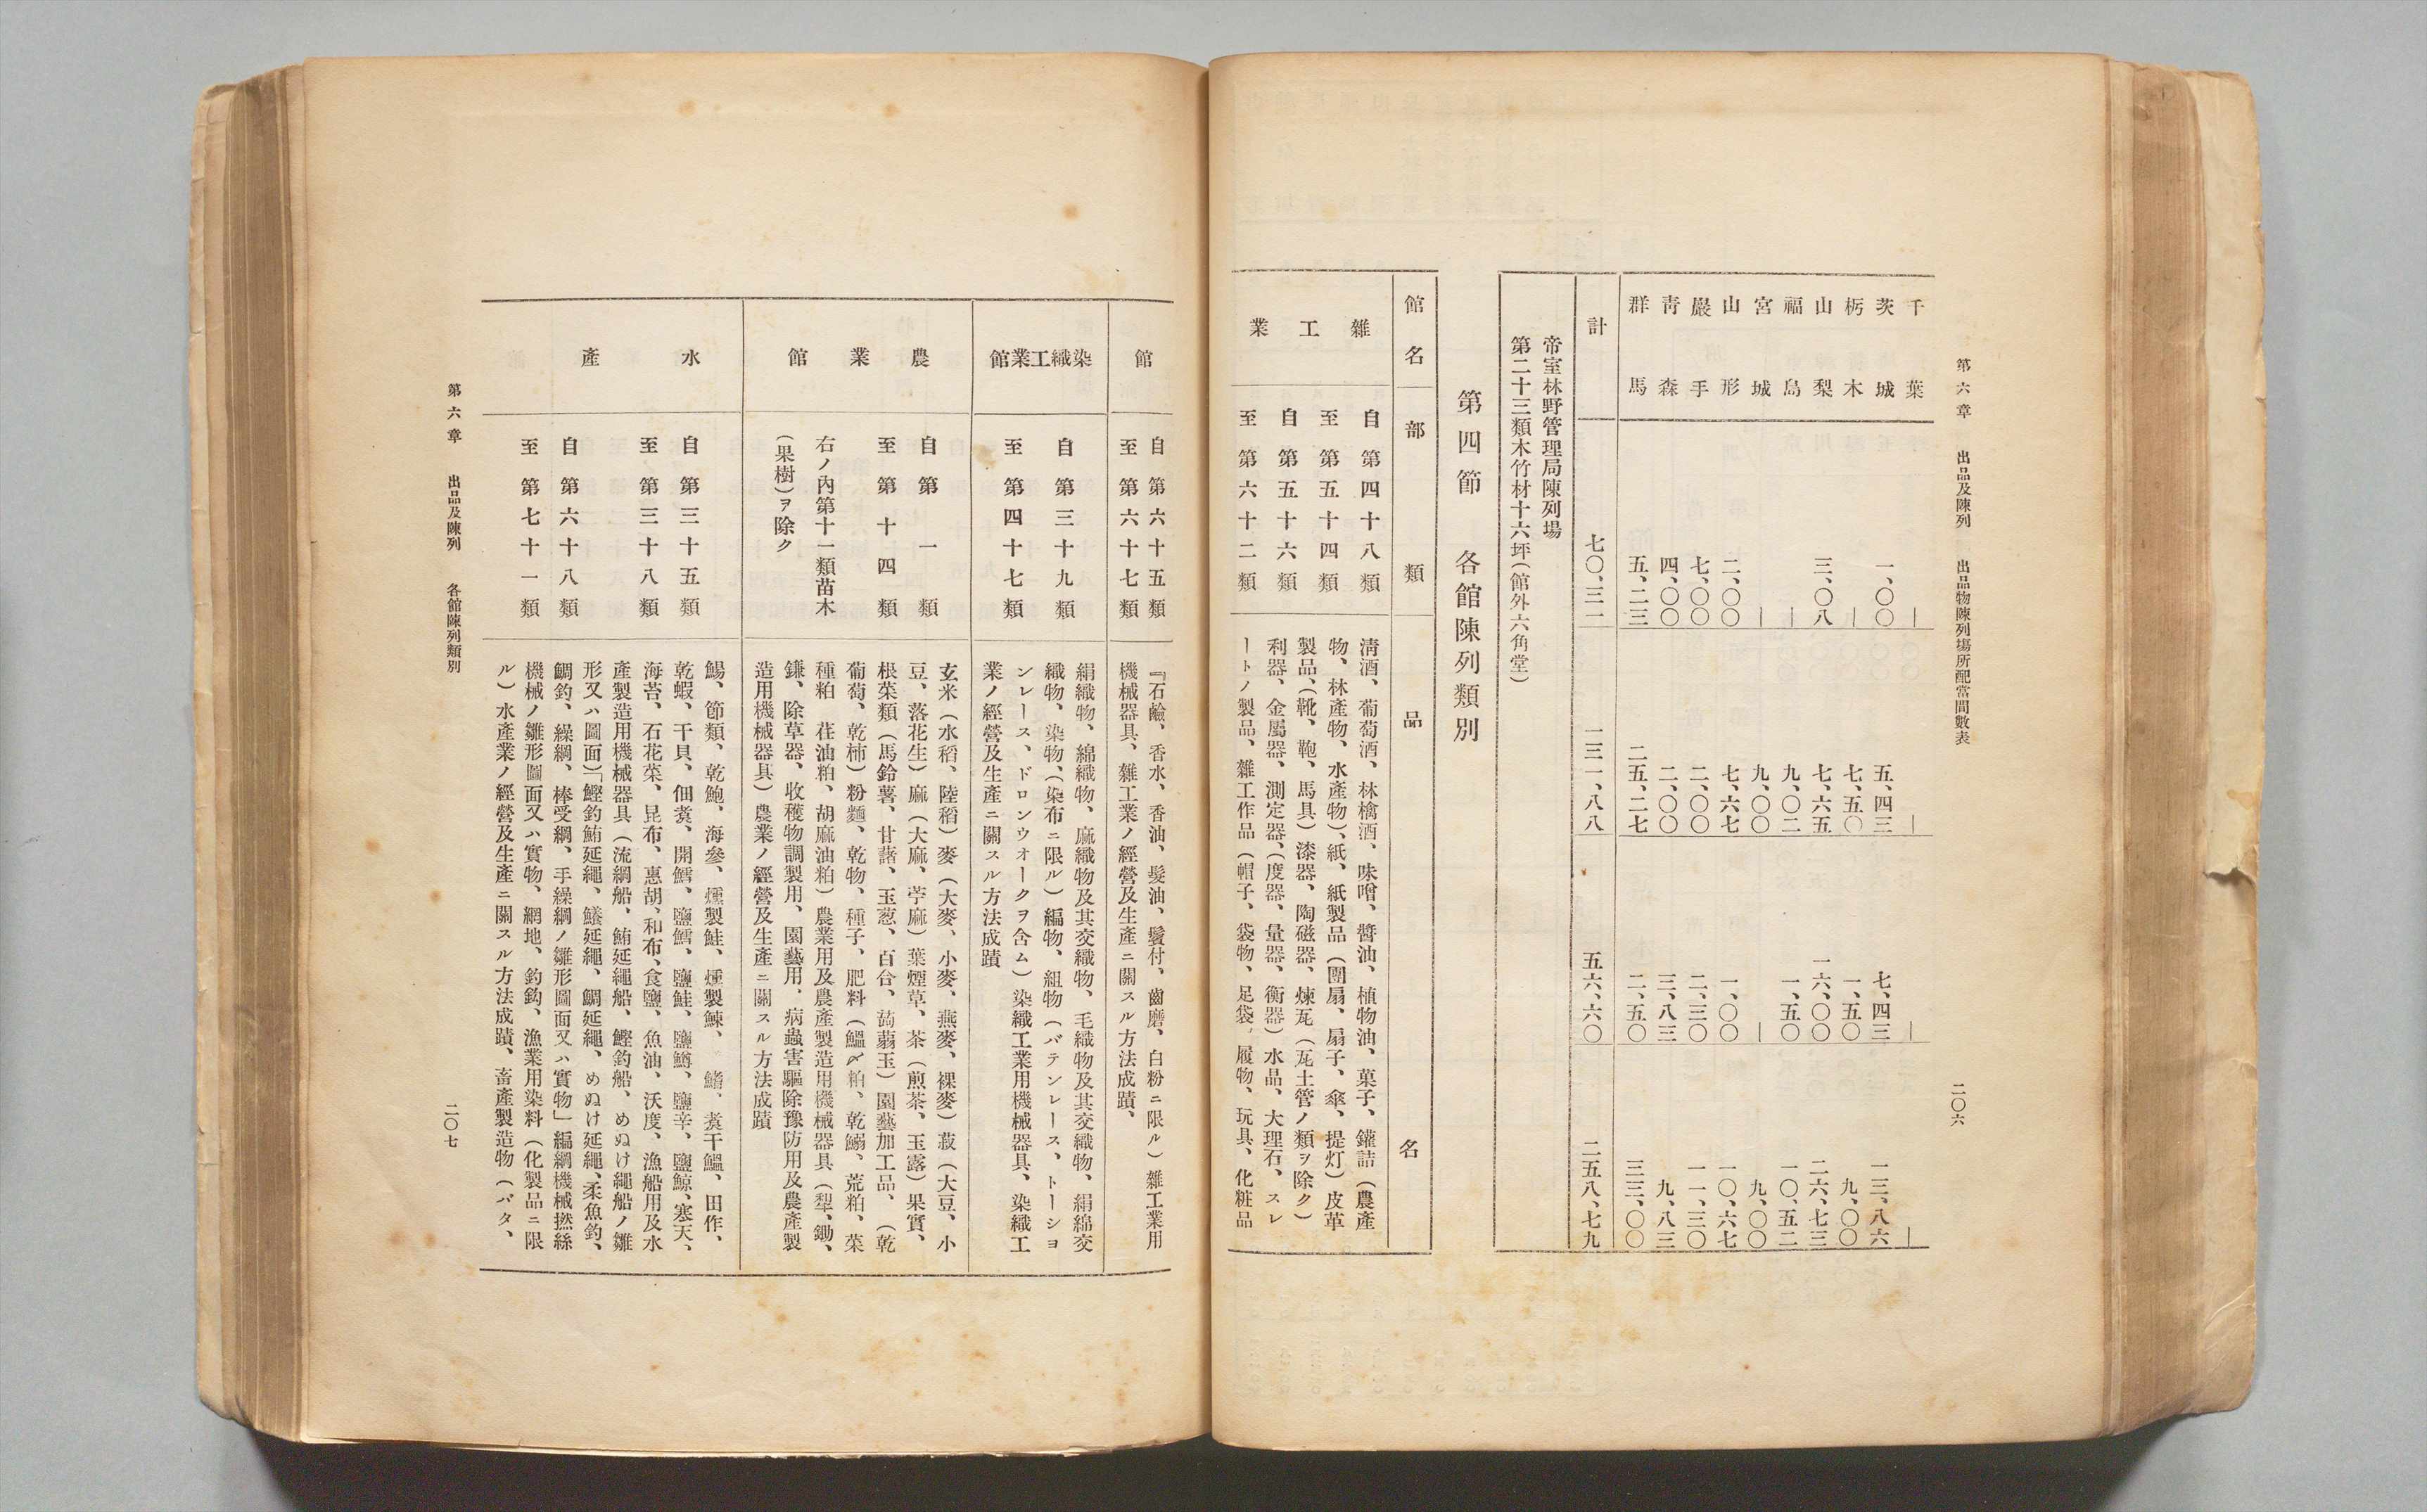 第六章　出品及陳列　出品物陳列場所配當間數表　二〇六
千葉　｜　｜　｜　｜
茨城　一、〇〇　五、四三　七、四三　一三、八六
栃木　｜　七、五〇　一、五〇　九、〇〇
山梨　三、〇八　七、六五　一六、〇〇　二六、七三
福島　｜　九、〇二　一、五〇　一〇、五二
宮城　｜　九、〇〇　｜　九、〇〇
山形　二、〇〇　七、六七　一、〇〇　一〇、六七
巖手　七、〇〇　二、〇〇　二、三〇　一一、三〇
靑森　四、〇〇　二、〇〇　三、八三　九、八三
群馬　五、二三　二五、二七　二、五〇　三三、〇〇
計　七〇、三一　一三一、八八　五六、六〇　二五八、七九
帝室林野管理局陳列場
第二十三類木竹材十六坪（館外六角堂）
第四節　各館陳列類別
館名　部類　品名
雜工業
自第四十八類
至第五十四類
自第五十六類
至第六十二類
淸酒、葡萄酒、林檎酒、味噌、醬油、植物油、菓子、鑵詰（農產
物、林產物、水產物）、紙、紙製品（團扇、扇子、傘、提灯）皮革
製品、（靴、鞄、馬具）漆器、陶磁器、煉瓦（瓦土管ノ類ヲ除ク）
利器、金屬器、測定器、（度器、量器、衡器）水品、大理石、スレ
ートノ製品、雜工作品（帽子、袋物、足袋、履物、玩具、化粧品
館
自第六十五類
至第六十七類
『石鹼、香水、香油、髮油、鬢付、齒磨、白粉ニ限ル）雜工業用
機械器具、雜工業ノ經營及生產ニ關スル方法成蹟、
染織工業館
自第三十九類
至第四十七類
絹織物、綿織物、麻織物及其交織物、毛織物及其交織物、絹綿交
織物、染物、（染布ニ限ル）編物、組物（バテンレース、トーシヨ
ンレース、ドロンウオークヲ含ム）染織工業用機械器具、染織工
業ノ經營及生產ニ關スル方法成蹟
農業館
自第一類
至第十四類
右ノ內第十一類苗木
（果樹）ヲ除ク
玄米（水稻、陸稻）麥（大麥、小麥、燕麥、裸麥）菽（大豆、小
豆、落花生）麻（大麻、苧麻）葉煙草、茶（煎茶、玉露）果實、
根菜類（馬鈴薯、甘藷、玉葱、百合、蒟蒻玉）園藝加工品、（乾
葡萄、乾柿）粉麵、乾物、種子、肥料（鰮〆粕、乾鰯、荒粕、菜
種粕　荏油粕、胡麻油粕）農業用及農產製造用機械器具（犁、鋤、
鎌、除草器、收穫物調製用、園藝用、病蟲害驅除豫防用及農產製
造用機械器具）農業ノ經營及生產ニ關スル方法成蹟
水產
自第三十五類
至第三十八類
自第六十八類
至第七十一類
鯣、節類、乾鮑、海參、燻製鮭、燻製鰊、鰭、煑干鰮、田作、
乾蝦、干貝、佃煑、開鱈、鹽鱈、鹽鮭、鹽鱒、鹽辛、鹽鯨、寒天、
海苔、石花菜、昆布、惠胡、和布、食鹽、魚油、沃度、漁船用及水
產製造用機械器具（流網船、鮪延繩船、鰹釣船、めぬけ繩船ノ雛
形又ハ圖面）「鰹釣鮪延繩、鱶延繩、鯛延繩、めぬけ延繩、柔魚釣、
鯛釣、繰網、棒受網、手繰網ノ雛形圖面又ハ實物」編網機械撚絲
機械ノ雛形圖面又ハ實物、網地、釣鈎、漁業用染料（化製品ニ限
ル）水產業ノ經營及生產ニ關スル方法成蹟、畜產製造物（バタ、
第六章　出品及陳列　各館陳列類別　二〇七